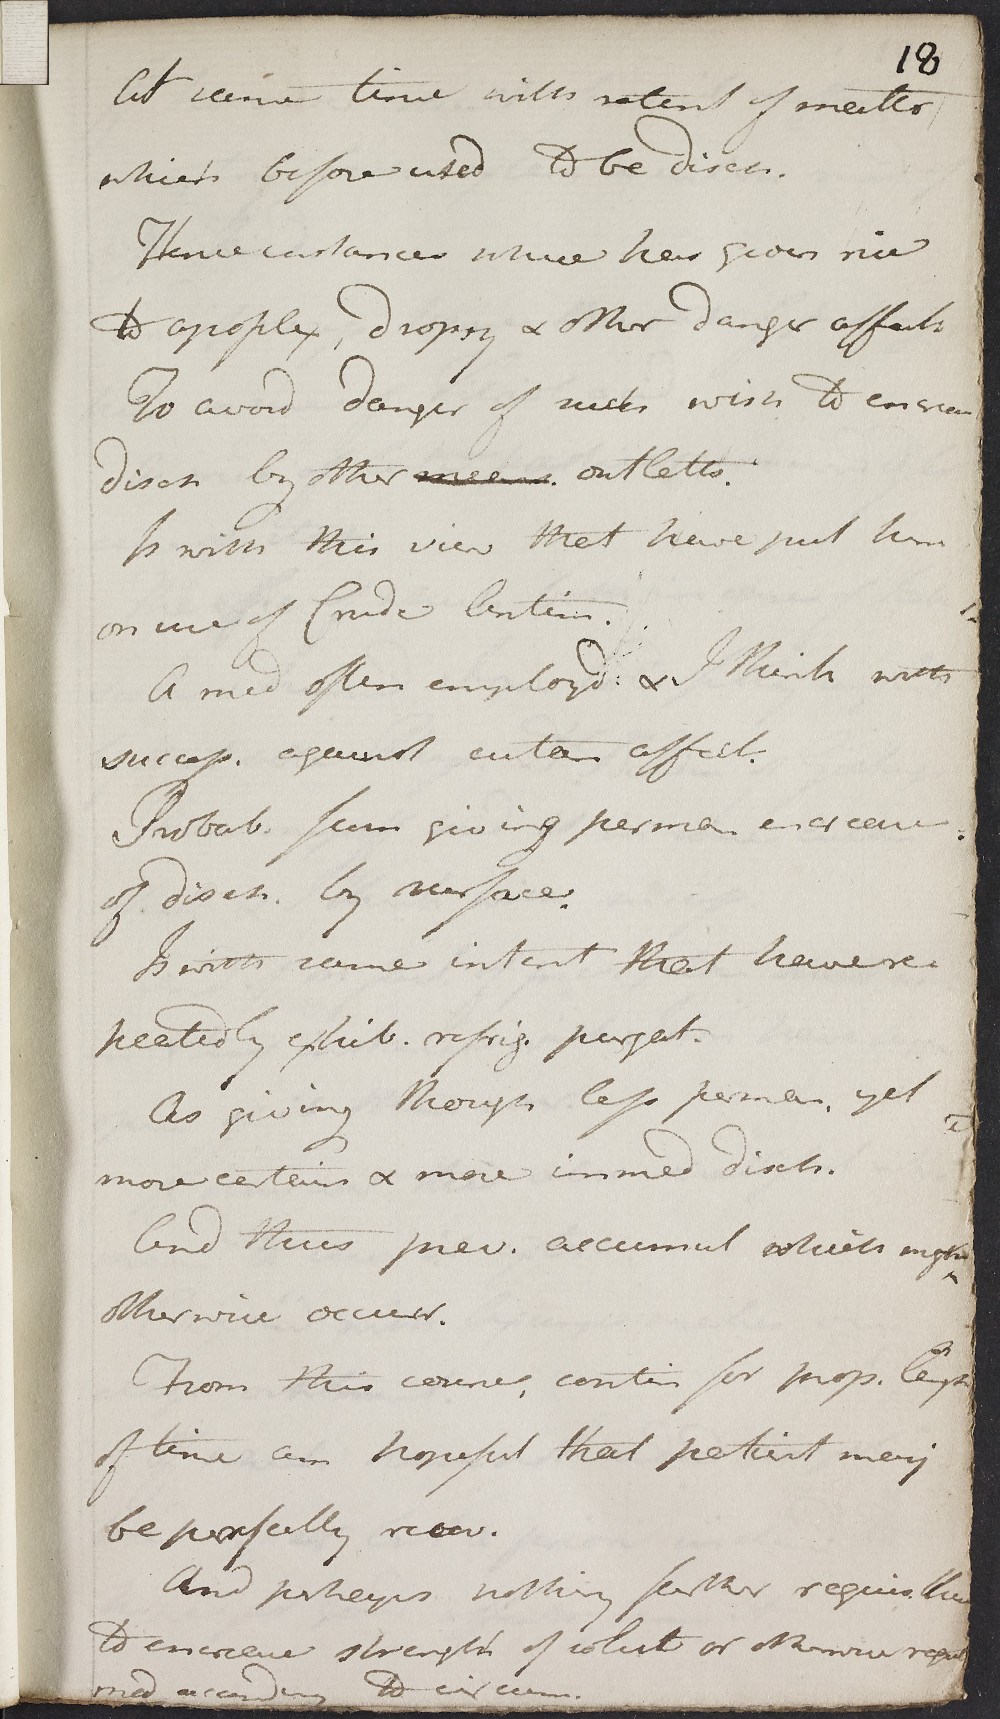 18
At same time with retent of matter
which before used to be disch.
Have instances where has given rise
to apoplex, dropsy & other danger affects
To avoid danger of such wish to encrea
disch by other means. outletts.
Is with this view that have put him
on use of Crude Antim.
A med often employd. & I think with
success. against cutan affect.
Probab. from giving perman encrease
of disch. by surface.
Is with same intent that have re-
peatedly exhib. refrig. purgat.
As giving though less perman. yet
more certain & more immed disch.
And thus prev. accumul which might
otherwise occurr.
From this course, contin for prop. length
of time am hopeful that patient may
be perfectly recov.
And perhaps nothing further requis. than
to encrease strength of solut or otherwise regul
med according to circum.